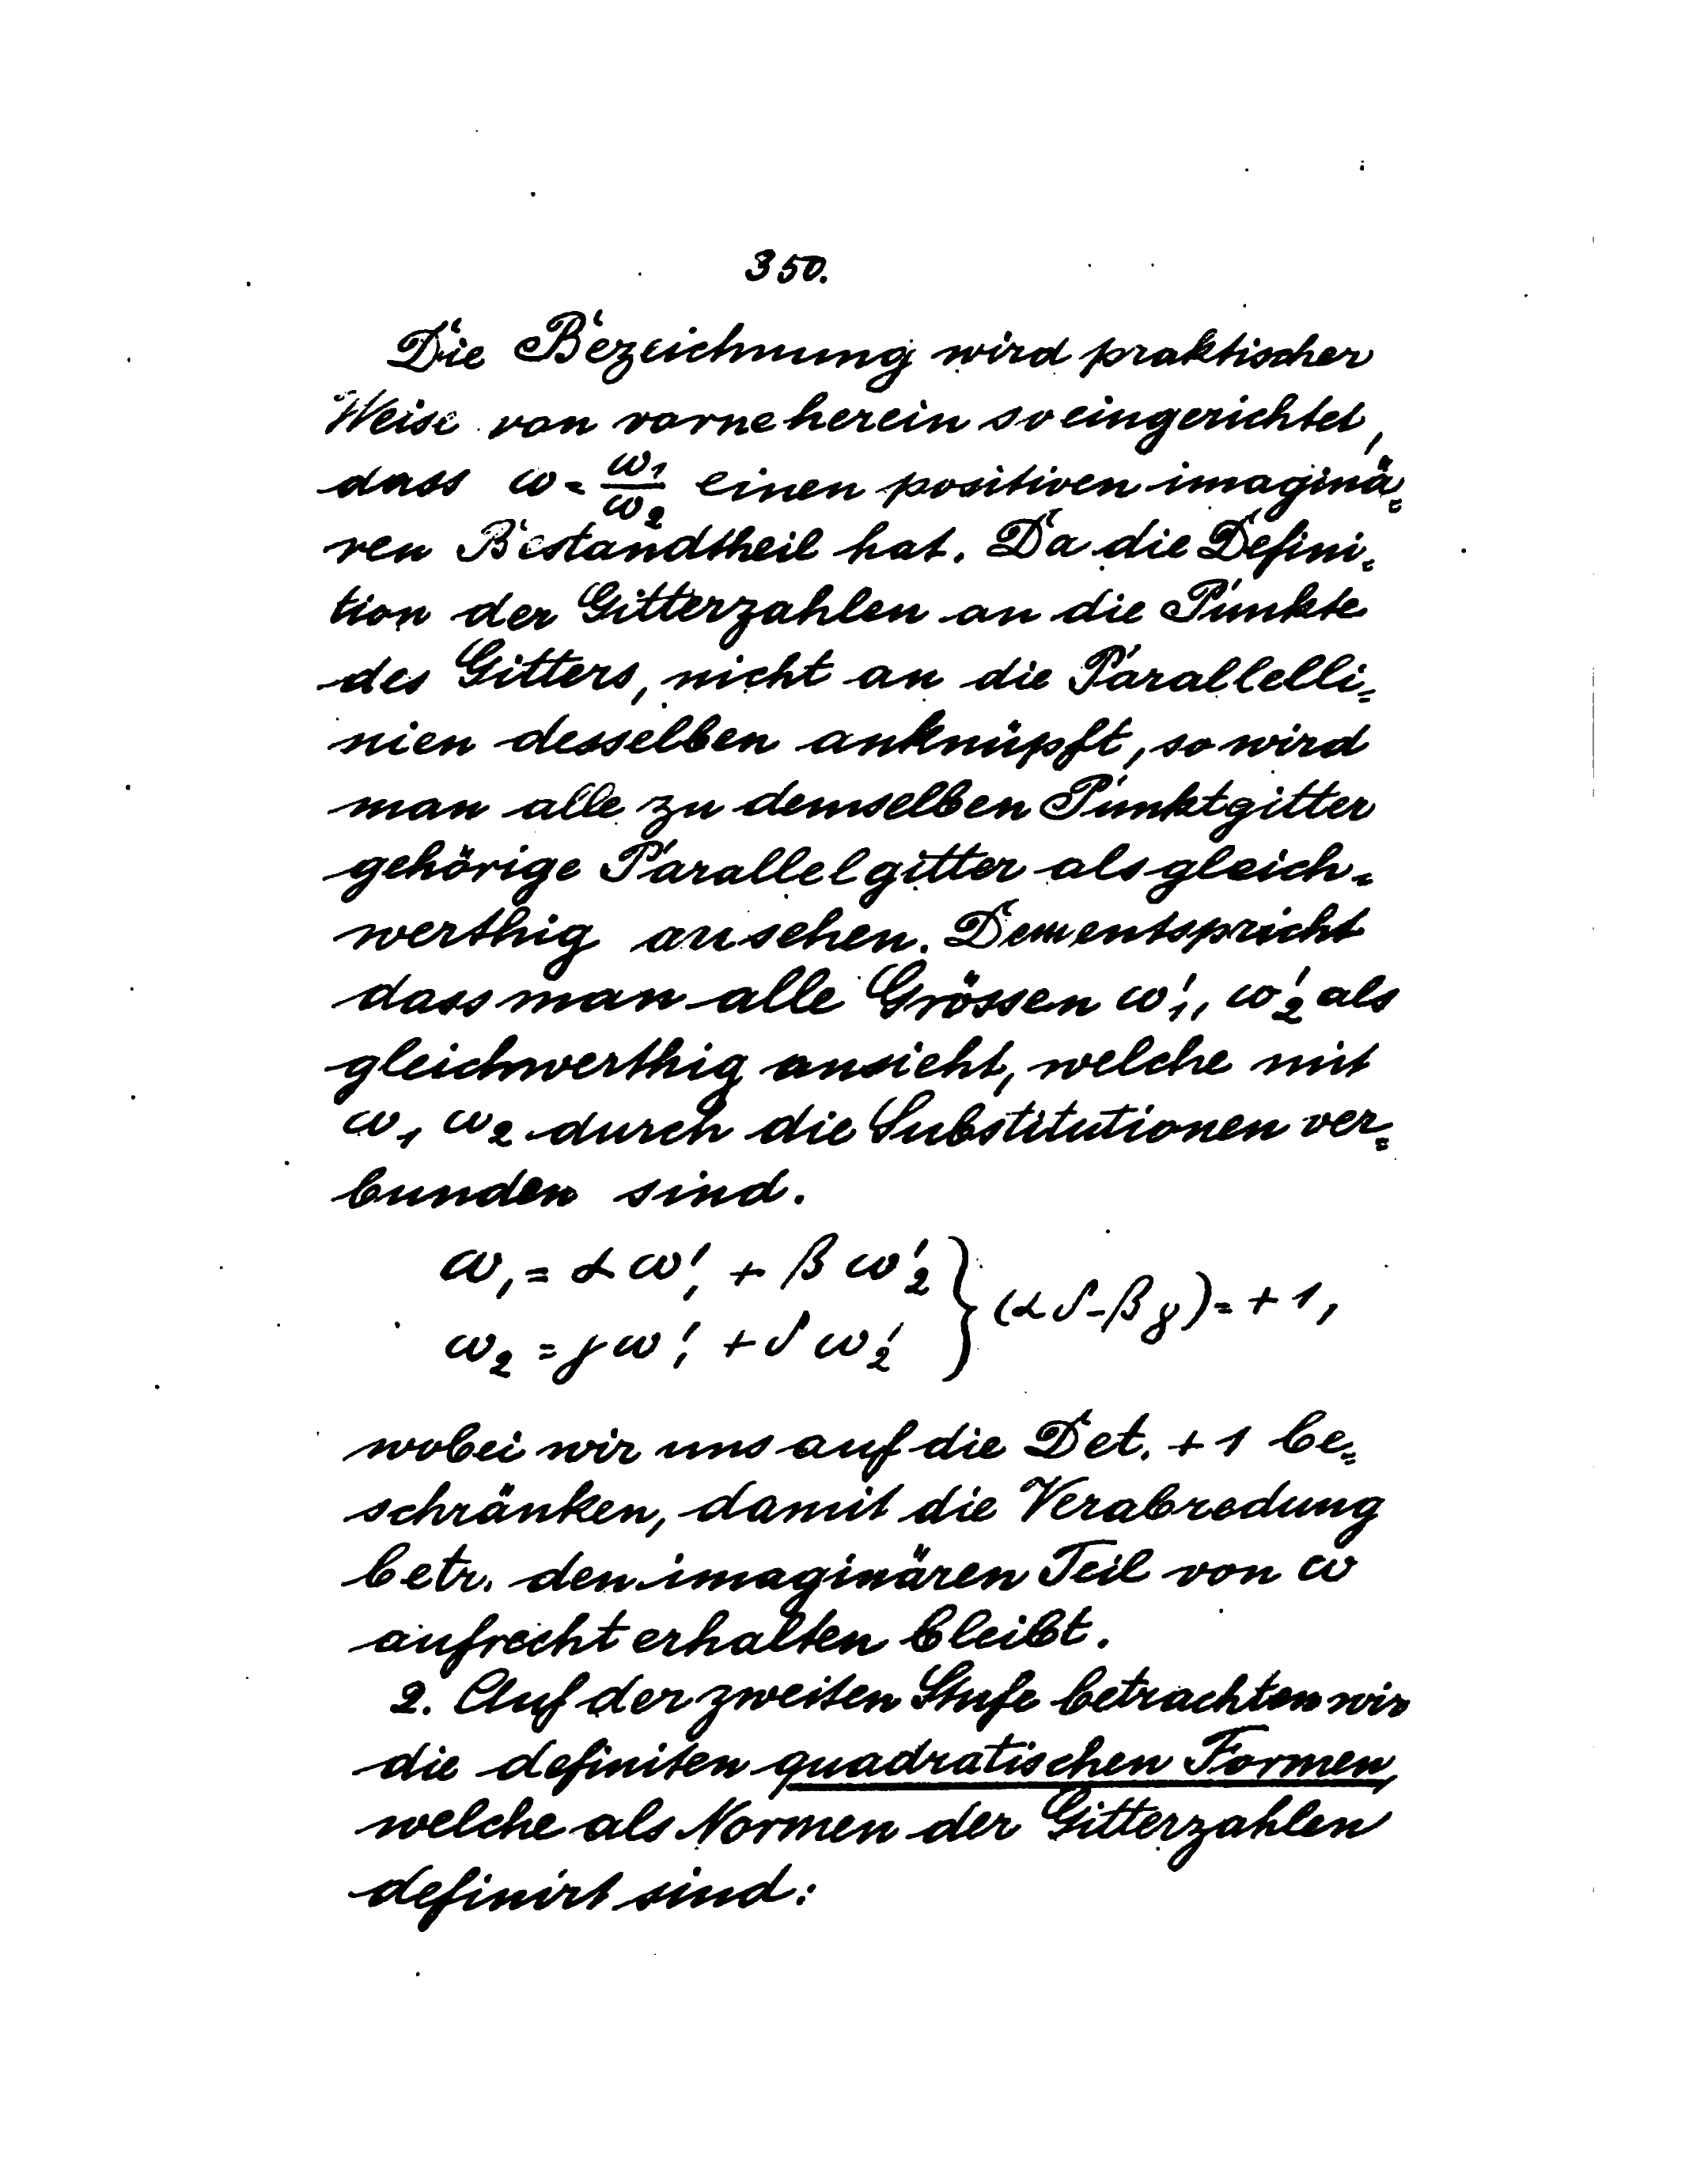 350.
Die Bezeichnung wird praktischer
Weise von vorneherein so eingerichtet,
dass ω = ω₁/ω₂ einen positiven imaginä=
ren Bestandtheil hat. Da die Defini=
tion der Gitterzahlen an die Punkte
des Gitters, nicht an die Parallelli=
nien desselben anknüpft, so wird
man alle zu demselben Punktgitter
gehörige Parallelgitter als gleich=
werthig ansehen. Dem entspricht
dass man alle Grössen ω'₁, ω'₂ als
gleichwerthig ansieht, welche mit
ω₁ ω₂ durch die Substitutionen ver=
bunden sind.
ω₁ = α ω'₁ + β ω'₂
ω₂ = γ ω'₁ + δ ω'₂ } (α δ - β γ) = + 1,
wobei wir uns auf die Det. + 1 be=
schränken, damit die Verabredung
betr. den imaginären Teil von ω
aufrecht erhalten bleibt.
2. Auf der zweiten Stufe betrachten wir
die definiten quadratischen Formen,
welche als Normen der Gitterzahlen
definirt sind: